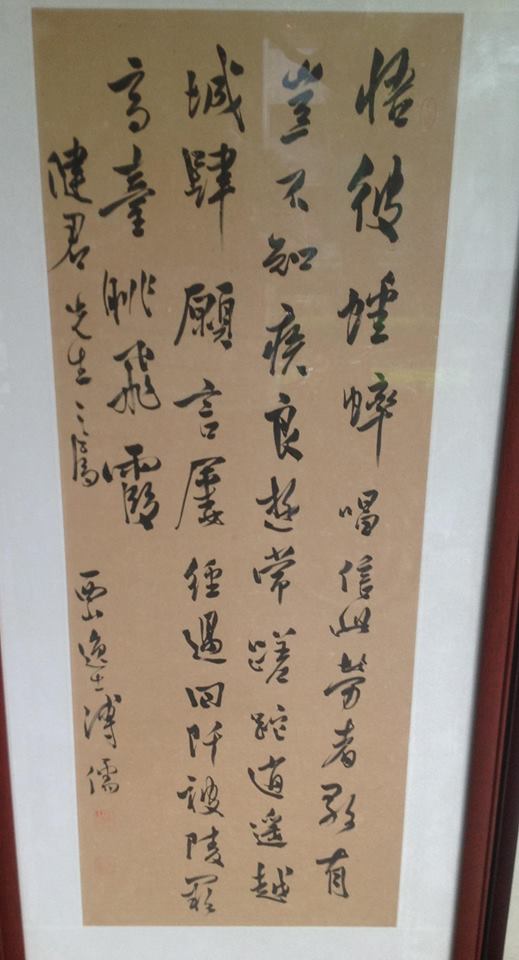 悟彼蟋蟀唱信此勞者歌有
豈不知疾良遊常蹉跎逍遙越
城肆願言屢經過回阡被陵闕
高臺眺飛霞
健君先生之屬
西山逸士溥儒